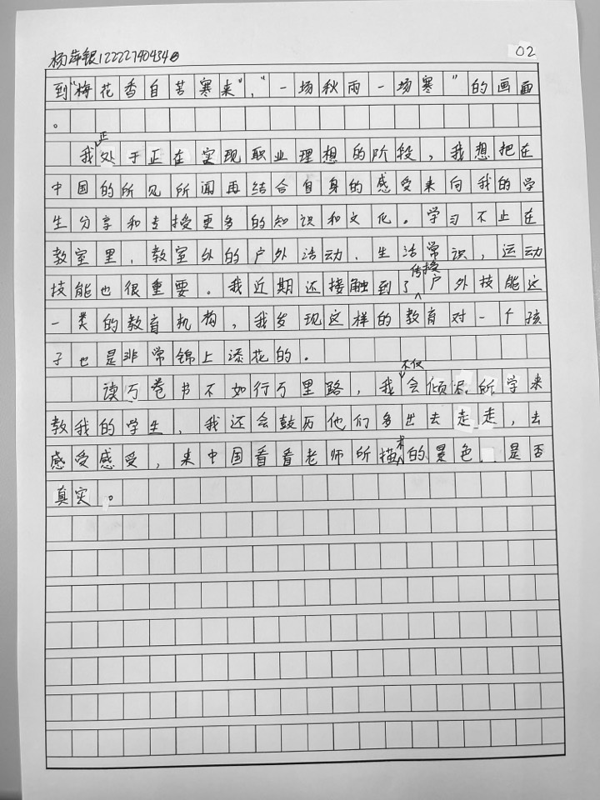 杨萍银12222790434
02
到"梅花香自苦寒来","一场秋雨一场寒"的画面
。
正
我处于正在实现职业理想的阶段，我想把在
中国的所见所闻再结合自身的感受来向我的学
生分享和支授更多的知识和文化。学习不止在
教室里，教室外的户外活动，生活常识，运动
传授
技能也很重要。我近期还接触到了户外技能这
一类的教育机构，我发现这样的教育对一个孩
子也是非常锦上添花的。
不仅
读万卷书不如行万里路，我会倾尽所学来
教我的学生，我还会鼓历他们多出去走走，去
术
感受感受，来中国看看老师所描的景色 是否
真实。